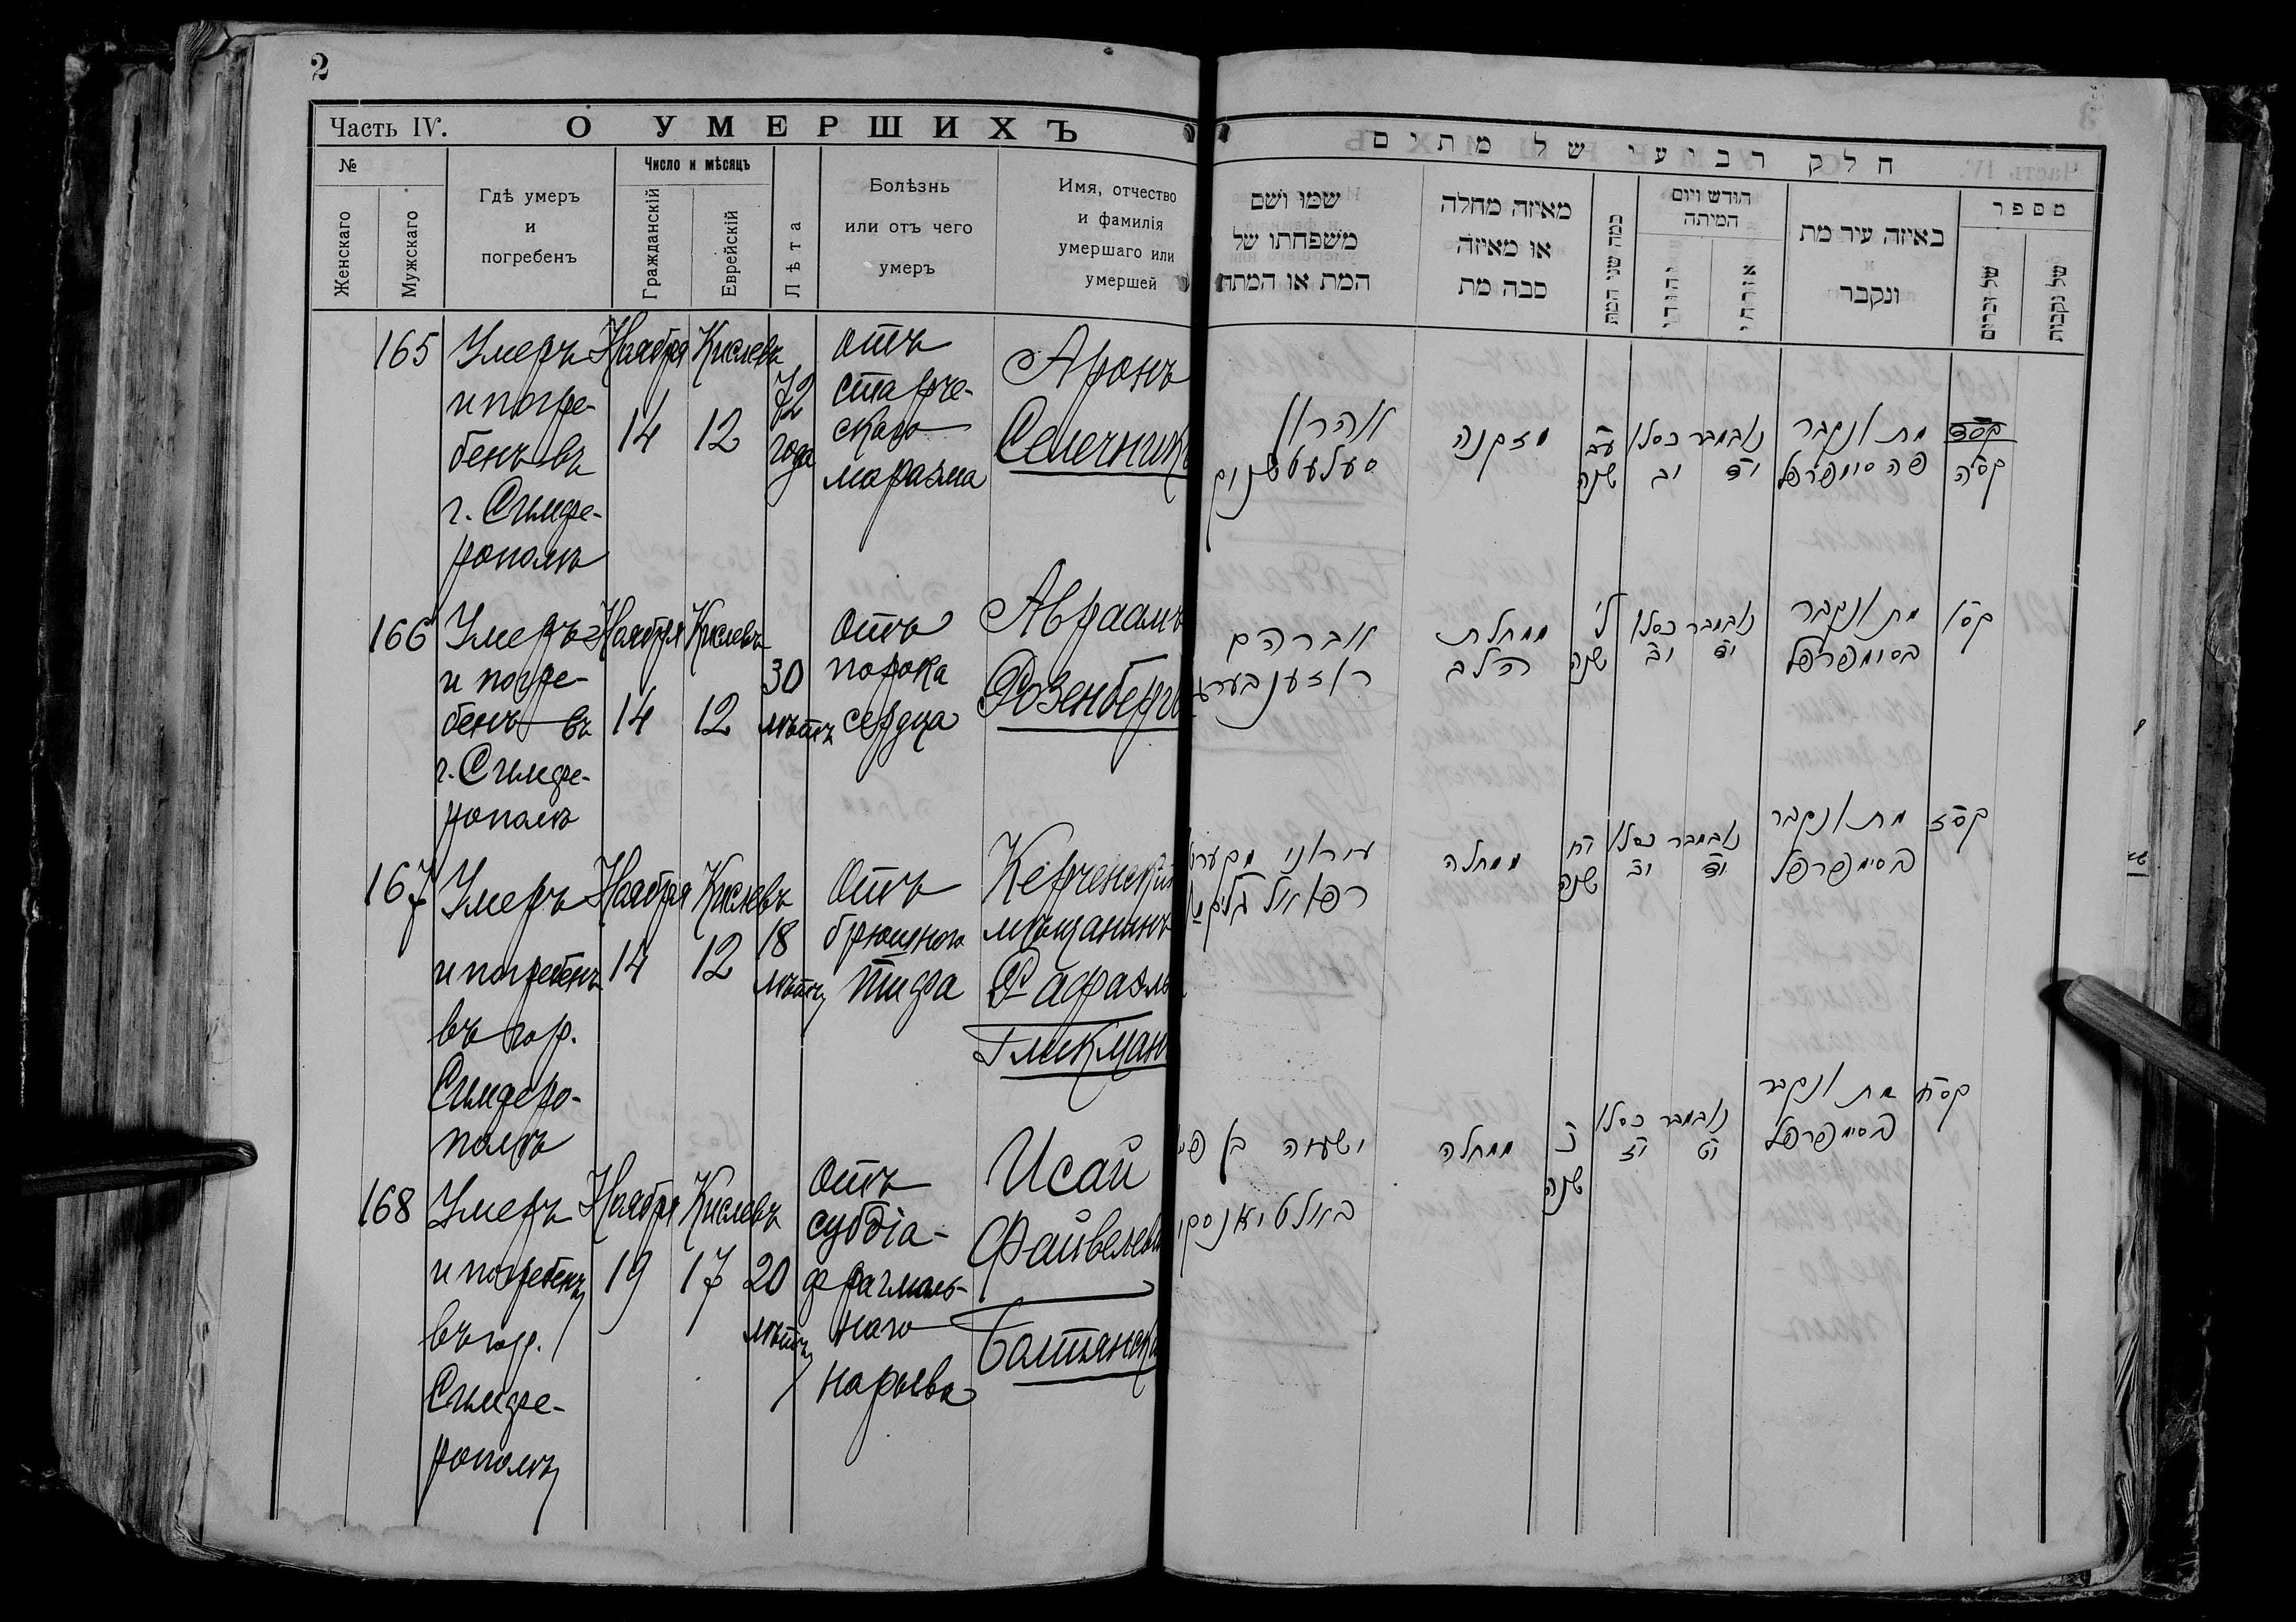 2
Часть IV.
О УМЕРШИХЪ
№
Женскаго
Мужскаго
Гдѣ умеръ
и
погребенъ
Число и мѣсяцъ
Гражданскій
Еврейскій
Лѣта
Болѣзнь
или отъ чего
умеръ
Имя, отчество
и фамилія
умершаго или
умершей
165
Умеръ
и погре-
бенъ въ
г. Симфе-
рополѣ
Ноября
14
Кислевъ
12
72
года
Отъ
старче-
скаго
маразма
Аронъ
Селечникъ
166
Умеръ
и погре-
бенъ въ
г. Симфе-
рополѣ
Ноября
14
Кислевъ
12
30
лѣтъ
Отъ
порока
сердца
Авраамъ
Розенбергъ
167
Умеръ
и погребенъ
въ гор.
Симферо-
полѣ
Ноября
14
Кислевъ
12
18
лѣтъ
Отъ
брюшного
тифа
Керченскій
мѣщанинъ
Рафаэль
Гликманъ
168
Умеръ
и погребенъ
въ гор.
Симфе-
рополѣ
Ноября
19
Кислевъ
17
20
лѣтъ
Отъ
субдіа-
фрагмаль-
наго
нарыва
Исай
Файвелев
Болтянск
חלק רביעי של מתים
מספר
של נקבות
של זכרים
באיזה עיר מת
ונקבר
חודש ויום
המיתה
כמה שני המת
מאיזה מחלה
או מאיזה
סבה מת
שמו ושם
משפחתו של
המת או המתה
קסה
מת ונקבר
פה סימפרפל
נובמבר
יד
כסלו
יב
עב
שנה
מזקנה
אהרון
סעלעטשניק
קסו
מת ונקבר
בסימפרפל
נובמבר
יד
כסלו
יב
ל
שנה
ממחלת
הלב
אברהם
ראזענבערג
קסז
מת ונקבר
בסימפרפל
נובמבר
יד
כסלו
יב
יח
שנה
ממחלה
עיראני מקערט
רפאאל גליקמ
קסח
מת ונקבר
בסימפרפל
נובמבר
יט
כסלו
יז
כ
שנה
ממחלה
ישעיה בן
באלטיאנסקי